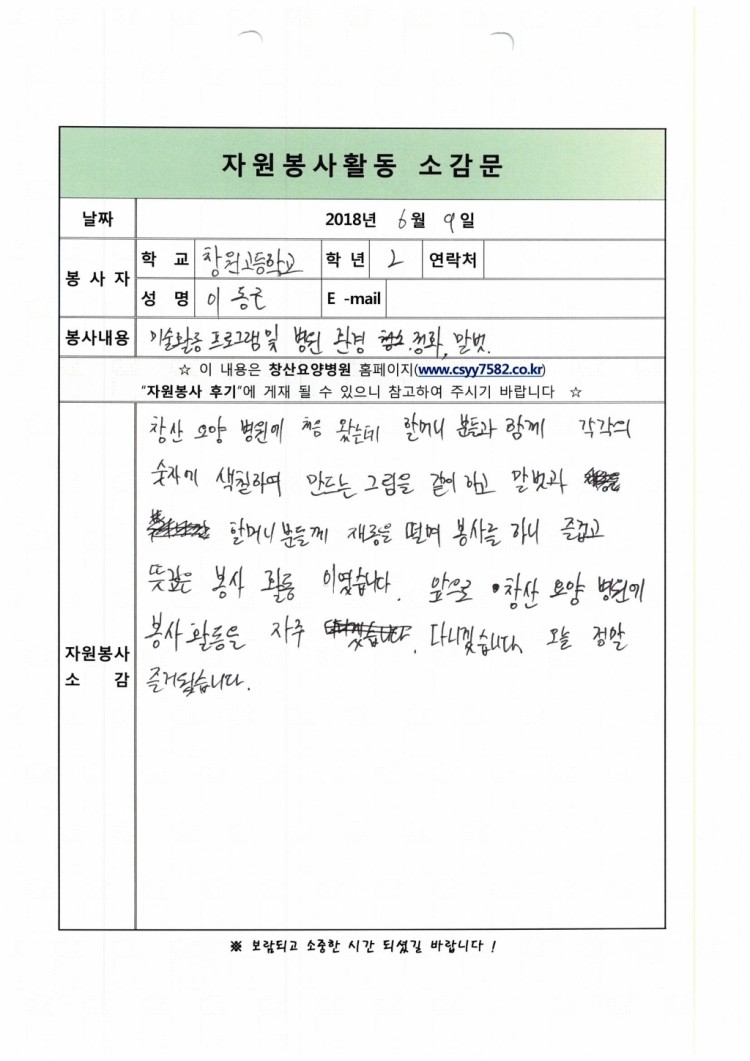 자원봉사활동 소감문
날짜 2018년 6월 9일
봉사자 학 교 창원고등학교 학 년 2 연락처
성 명 이동근 E -mail
봉사내용 미술활동 프로그램 및 병원 환경 정화, 말벗.
☆ 이 내용은 창산요양병원 홈페이지(www.csyy7582.co.kr)
"자원봉사 후기"에 게재 될 수 있으니 참고하여 주시기 바랍니다 ☆
자원봉사 소 감
창산 요양 병원에 처음 왔는데 할머니 분들과 함께 각각의
숫자에 색칠하여 만드는 그림을 같이 하고 말벗과
할머니 분들께 재롱을 떨며 봉사를 하니 즐겁고
뜻깊은 봉사 활동 이였습니다. 앞으로 창산 요양 병원에
봉사 활동을 자주 다니겠습니다. 오늘 정말
즐거웠습니다.
※ 보람되고 소중한 시간 되셨길 바랍니다 !